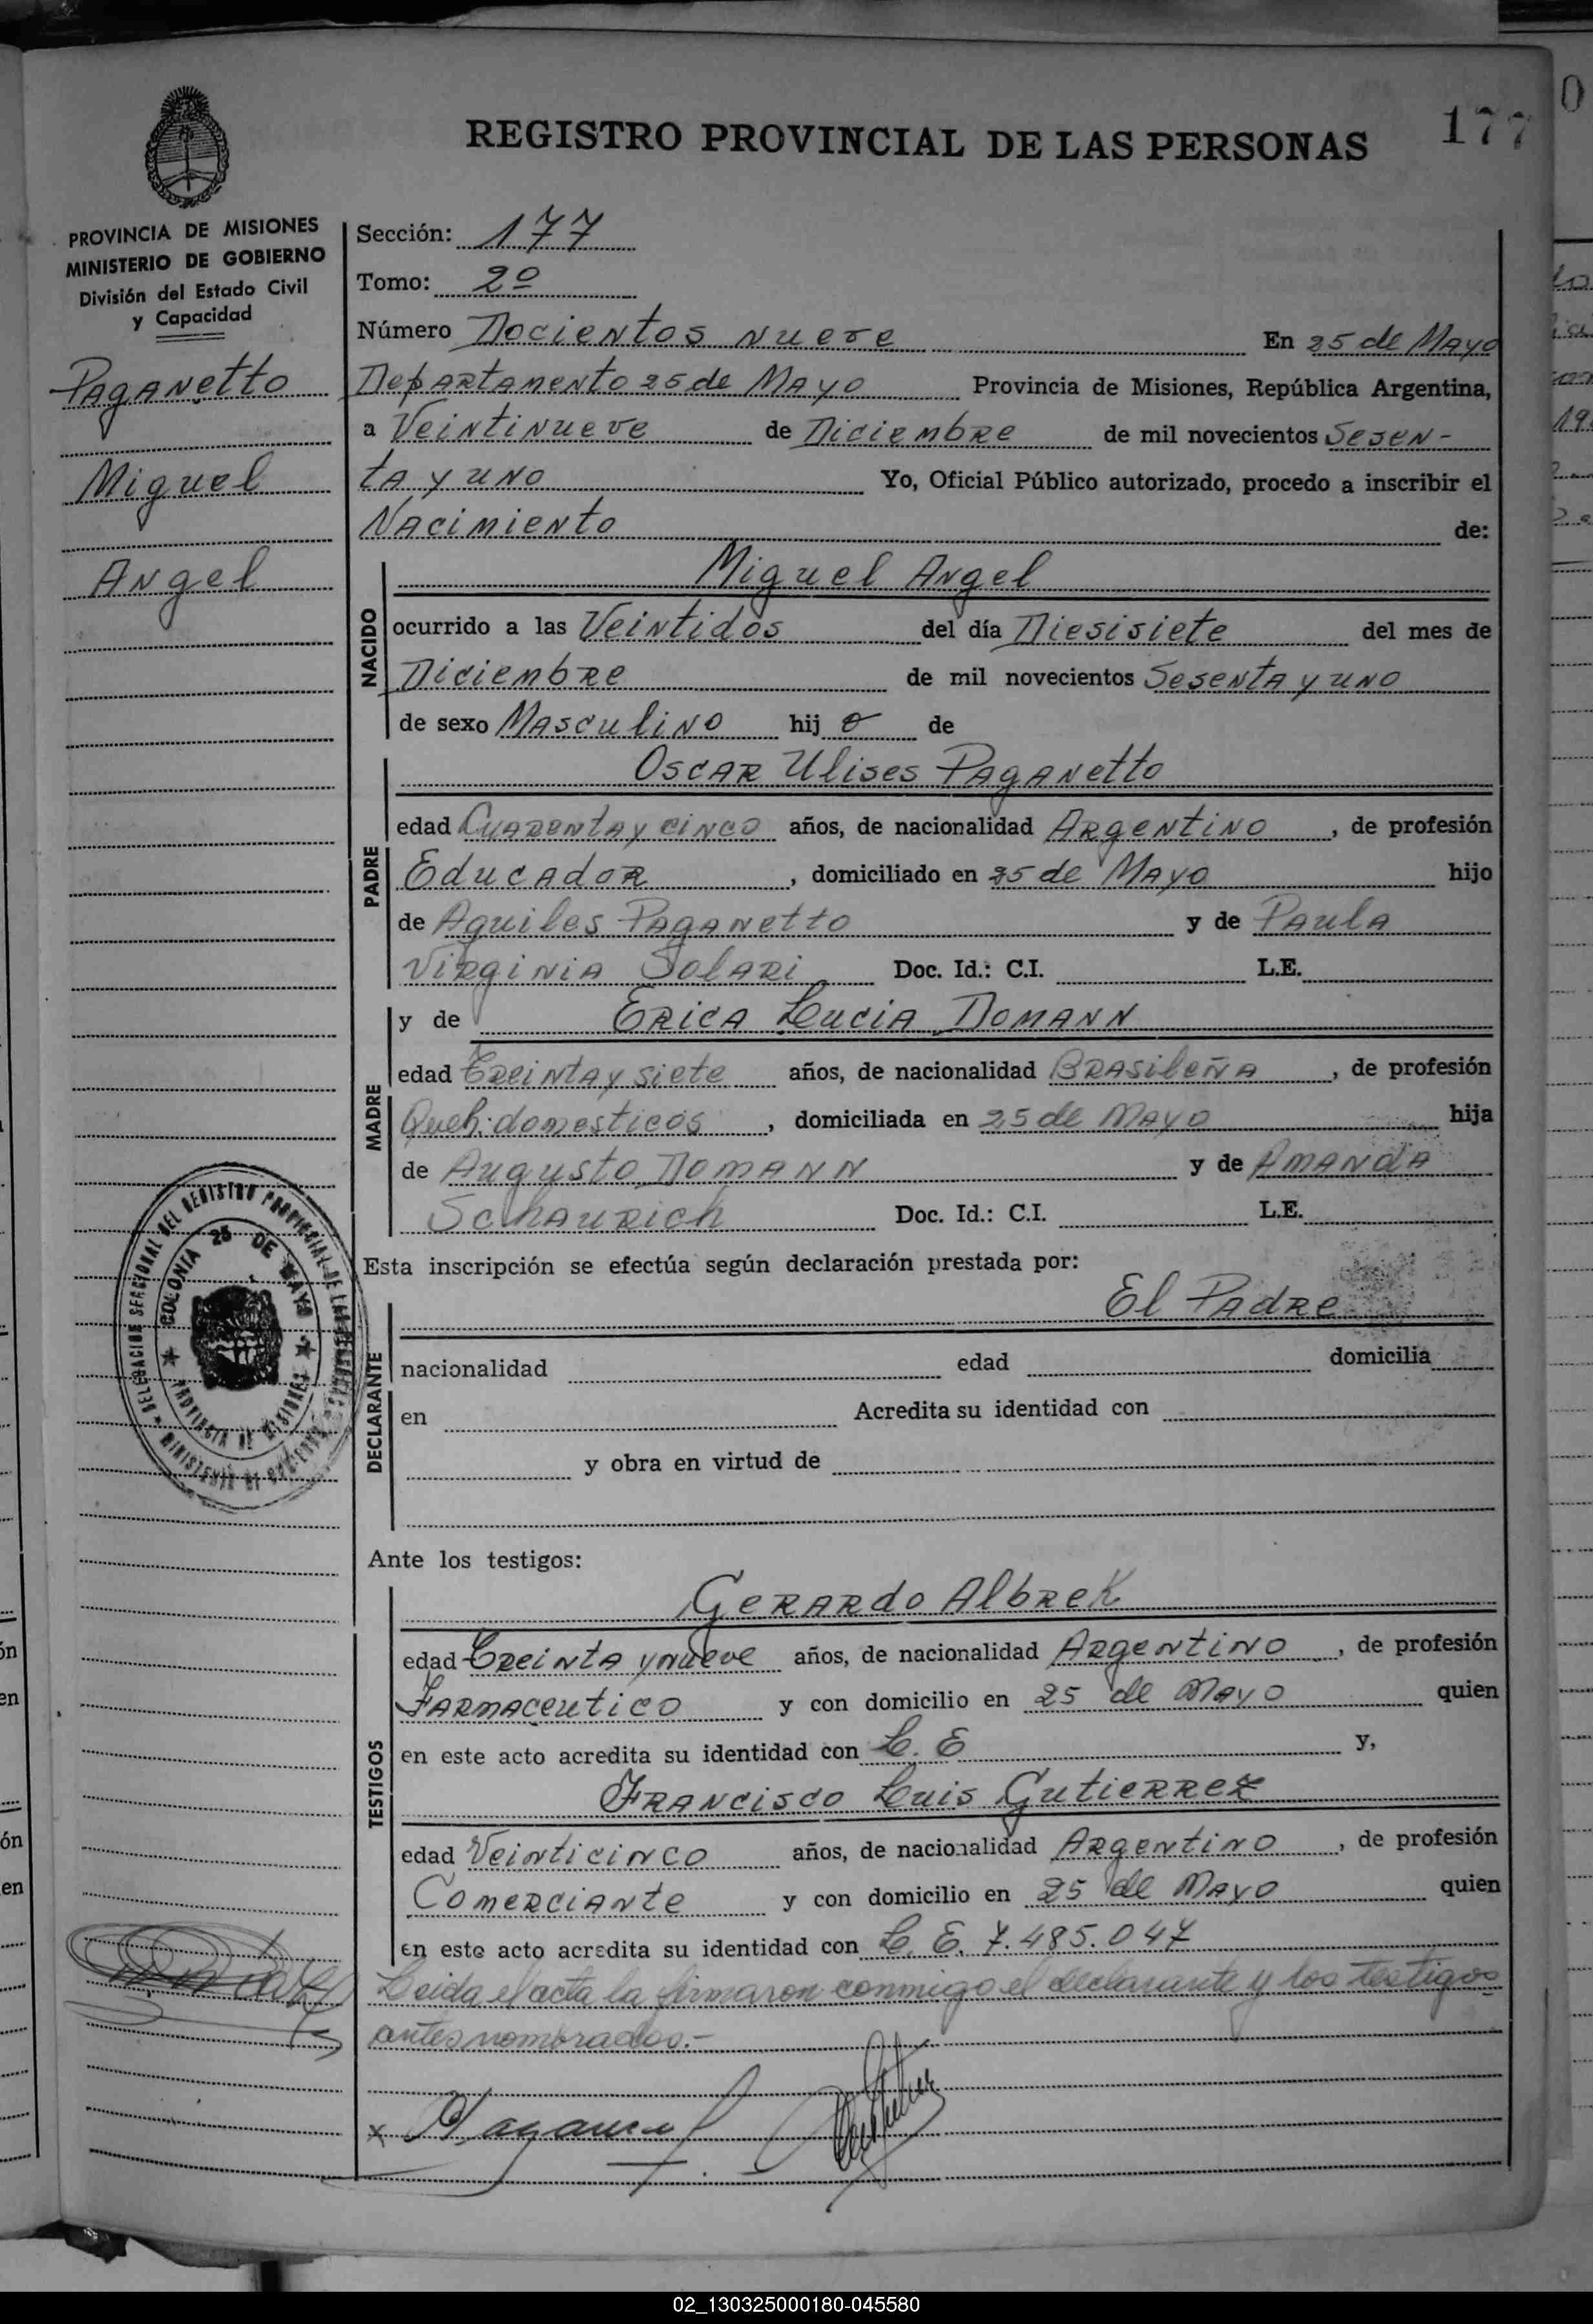 REGISTRO PROVINCIAL DE LAS PERSONAS
177
PROVINCIA DE MISIONES
MINISTERIO DE GOBIERNO
División del Estado Civil
y Capacidad
Paganetto
Miguel
Angel
Sección: 177
Tomo: 2º
Número Docientos nueve En 25 de Mayo
Departamento 25 de Mayo Provincia de Misiones, República Argentina,
a Veintinueve de Diciembre de mil novecientos Sesen-
ta y uno Yo, Oficial Público autorizado, procedo a inscribir el
Nacimiento de:
NACIDO
Miguel Angel
ocurrido a las Veintidos del día Diesisiete del mes de
Diciembre de mil novecientos Sesenta y uno
de sexo Masculino hij o de
PADRE
Oscar Ulises Paganetto
edad Cuarenta y cinco años, de nacionalidad Argentino, de profesión
Educador, domiciliado en 25 de Mayo hijo
de Aquiles Paganetto y de Paula
Virginia Solari Doc. Id.: C.I. L.E.
MADRE
y de Erica Lucia Domann
edad Treinta y siete años, de nacionalidad Brasileña, de profesión
Queh. domesticos, domiciliada en 25 de Mayo hija
de Augusto Domann y de Amanda
Schaurich Doc. Id.: C.I. L.E.
DELEGACION SECCIONAL DEL REGISTRO PROVINCIAL DE LAS
COLONIA 25 DE MAYO
PROVINCIA DE MISIONES
MINISTERIO DE GOBIERNO
Esta inscripción se efectúa según declaración prestada por:
DECLARANTE
El Padre
nacionalidad edad domicilia
en Acredita su identidad con
y obra en virtud de
Ante los testigos:
TESTIGOS
Gerardo Albrek
edad Treinta y nueve años, de nacionalidad Argentino, de profesión
Farmaceutico y con domicilio en 25 de Mayo quien
en este acto acredita su identidad con L. E y,
Francisco Luis Gutierrez
edad Veinticinco años, de nacionalidad Argentino, de profesión
Comerciante y con domicilio en 25 de Mayo quien
en este acto acredita su identidad con L. E. 7.485.047
Leida el acta la firmaron conmigo el declarante y los testigos
antes nombrados.-
x
02_130325000180-045580